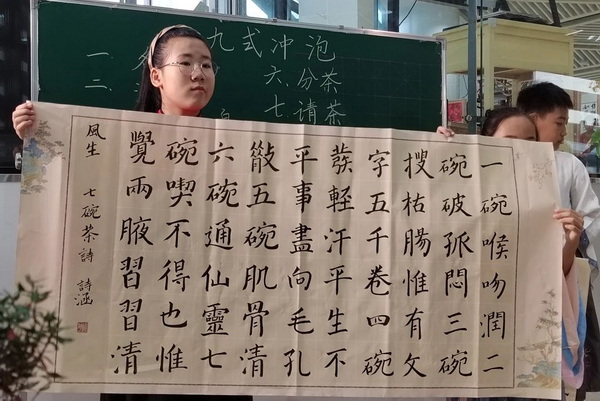 九式冲泡
一.
二.
六.分茶
七.请茶
一碗喉吻潤二
碗破孤悶三碗
搜枯腸惟有文
字五千卷四碗
發輕汗平生不
平事盡向毛孔
散五碗肌骨清
六碗通仙靈七
碗喫不得也惟
覺兩腋習習清
風生 七碗茶詩 詩涵